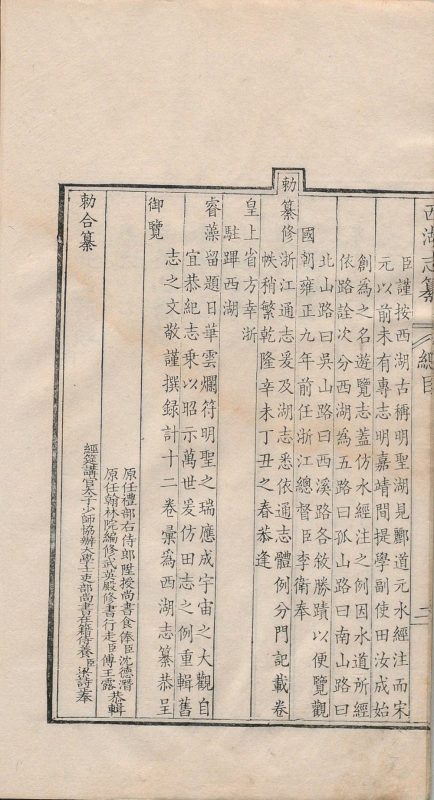 西湖志纂
總目
二
臣謹按西湖古稱明聖湖見酈道元水經注而宋
元以前未有專志明嘉靖間提學副使田汝成始
創為之名遊覽志蓋仿水經注之例因水道所經
依路詮次分西湖為五路曰孤山路曰南山路曰
北山路曰吳山路曰西溪路各敘勝蹟以便覽觀
國朝雍正九年前任浙江總督臣李衛奉
勅纂修浙江通志爰及湖志悉依通志體例分門記載卷
帙稍繁乾隆辛未丁丑之春恭逢
皇上省方幸浙
駐蹕西湖
睿藻留題日華雲爛符明聖之瑞應成宇宙之大觀自
宜恭紀志乘以昭示萬世爰仿田志之例重輯舊
志之文敬謹撰録計十二卷彙為西湖志纂恭呈
御覽
原任禮部右侍郎陞授尚書食俸臣沈德潛
原任翰林院編修武英殿修書行走臣傅王露
恭輯
經筵講官太子少師協辦大學士吏部尚書在籍侍養臣梁詩正奉
勅合纂